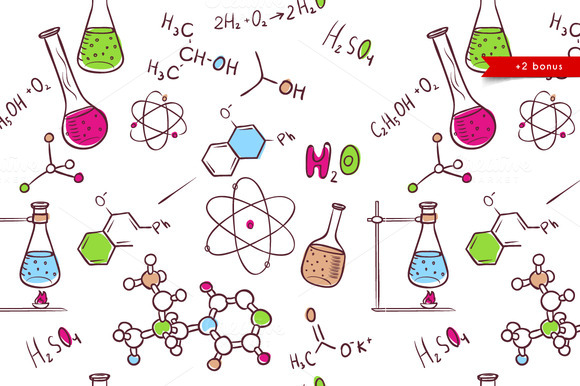 2H₂+O₂→2H₂O
H₃C
H₃C
OH
H₂SO₄
OH
+2 bonus
H₅OH + O₂
C₂H₅OH + O₂
O⁻
Ph
H₂O
O⁻
Ph
O⁻
Ph
H₂SO₄
O
H₃C
O⁻K⁺
H₂SO₄